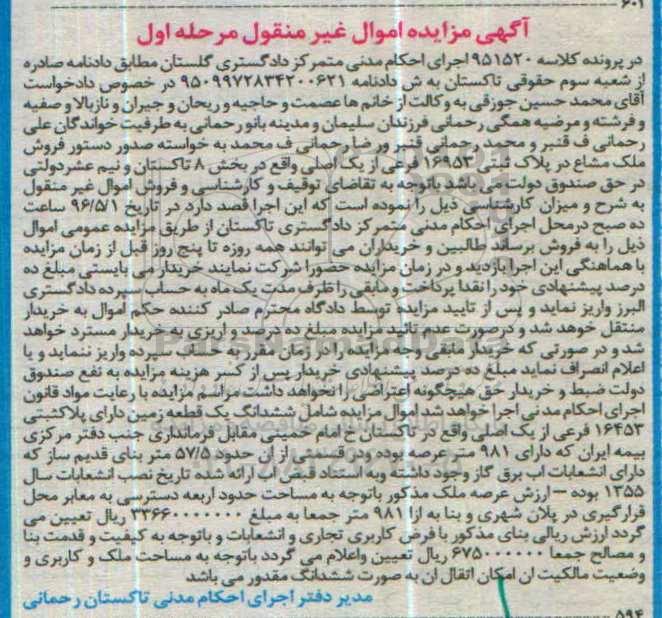 ۶۰۱
آگهی مزایده اموال غیر منقول مرحله اول
در پرونده کلاسه ۹۵۱۵۲۰ اجرای احکام مدنی متمرکز دادگستری گلستان مطابق دادنامه صادره
از شعبه سوم حقوقی تاکستان به ش دادنامه ۹۵۰۹۹۷۲۸۳۴۲۰۰۶۲۱ در خصوص دادخواست
آقای محمد حسین جوزقی به وکالت از خانم ها عصمت و حاجیه و ریحان و جیران و نازبالا و صفیه
و فرشته و مرضیه همگی رحمانی فرزندان سلیمان و مدینه بانو رحمانی به طرفیت خواندگان علی
رحمانی ف قنبر و محمد رحمانی قنبر و رضا رحمانی ف محمد به خواسته صدور دستور فروش
ملک مشاع در پلاک ثبتی ۱۶۹۵۳ فرعی از یک اصلی واقع در بخش ۸ تاکستان و نیم عشر دولتی
در حق صندوق دولت می باشد باتوجه به تقاضای توقیف و کارشناسی و فروش اموال غیر منقول
به شرح و میزان کارشناسی ذیل را نموده است که این اجرا قصد دارد در تاریخ ۹۶/۵/۱ ساعت
ده صبح درمحل اجرای احکام مدنی متمرکز دادگستری تاکستان از طریق مزایده عمومی اموال
ذیل را به فروش برساند طالبین و خریداران می توانند همه روزه تا پنج روز قبل از زمان مزایده
با هماهنگی این اجرا بازدید و در زمان مزایده حضورا شرکت نمایند خریدار می بایستی مبلغ ده
درصد پیشنهادی خود را نقدا پرداخت و مابقی را ظرف مدت یک ماه به حساب سپرده دادگستری
البرز واریز نماید و پس از تایید مزایده توسط دادگاه محترم صادر کننده حکم اموال به خریدار
منتقل خوهد شد و درصورت عدم تائید مزایده مبلغ ده درصد و اریزی به خریدار مسترد خواهد
شد و در صورتی که خریدار مابقی وجه مزایده را در زمان مقرر به حساب سپرده واریز ننماید و یا
اعلام انصراف نماید مبلغ ده درصد پیشنهادی خریدار پس از کسر هزینه مزایده به نفع صندوق
دولت ضبط و خریدار حق هیچگونه اعتراضی را نخواهد داشت مراسم مزایده با رعایت مواد قانون
اجرای احکام مدنی اجرا خواهد شد اموال مزایده شامل ششدانگ یک قطعه زمین دارای پلاکثبتی
۱۶۴۵۳ فرعی از یک اصلی واقع در تاکستان خ امام خمینی مقابل فرمانداری جنب دفتر مرکزی
بیمه ایران که دارای ۹۸۱ متر عرصه بوده ودن قسمتی از ان حدود ۵۷/۵ متر بنای قدیم ساز که
دارای انشعابات اب برق گاز وجود داشته وبه استناد قبض اب ارائه شده تاریخ نصب انشعابات سال
۱۳۵۵ بوده – ارزش عرصه ملک مذکور باتوجه به مساحت حدود اربعه دسترسی به معابر محل
قرارگیری در پلان شهری و بنا به ازا ۹۸۱ متر جمعا به مبلغ ۳۳۶۶۰۰۰۰۰۰۰ ریال تعیین می
گردد ارزش ریالی بنای مذکور با فرض کاربری تجاری و انشعابات و باتوجه به کیفیت و قدمت بنا
و مصالح جمعا ۶۷۵۰۰۰۰۰۰ ریال تعیین واعلام می گردد باتوجه به مساحت ملک و کاربری و
وضعیت مالکیت ان امکان اتقال ان به صورت ششدانگ مقدور می باشد
مدیر دفتر اجرای احکام مدنی تاکستان رحمانی
۵۹۴
ParsNamadData